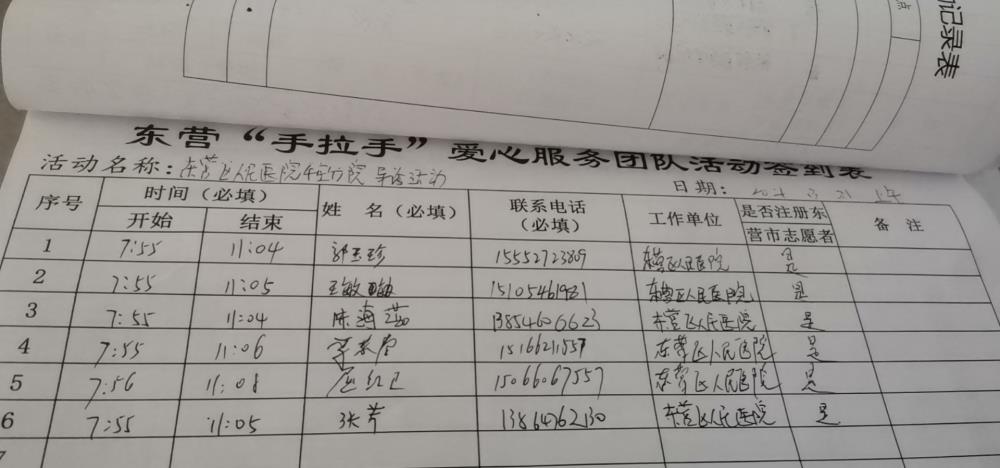 记录表
点
东营“手拉手”爱心服务团队活动签到表
活动名称：东营区人民医院 导诊活动
日期： 3 21
序号 时间（必填） 姓 名（必填） 联系电话（必填） 工作单位 是否注册东营市志愿者 备 注
开始 结束
1 7:55 11:04 郭玉珍 15552723809 东营区人民医院 是
2 7:55 11:05 王敏 15105461931 东营区人民医院 是
3 7:55 11:04 陈海燕 13854606623 东营区人民医院 是
4 7:55 11:06 15166211557 东营区人民医院 是
5 7:56 11:08 15066067557 东营区人民医院 是
6 7:55 11:05 张芳 13864762130 东营区人民医院 是
7